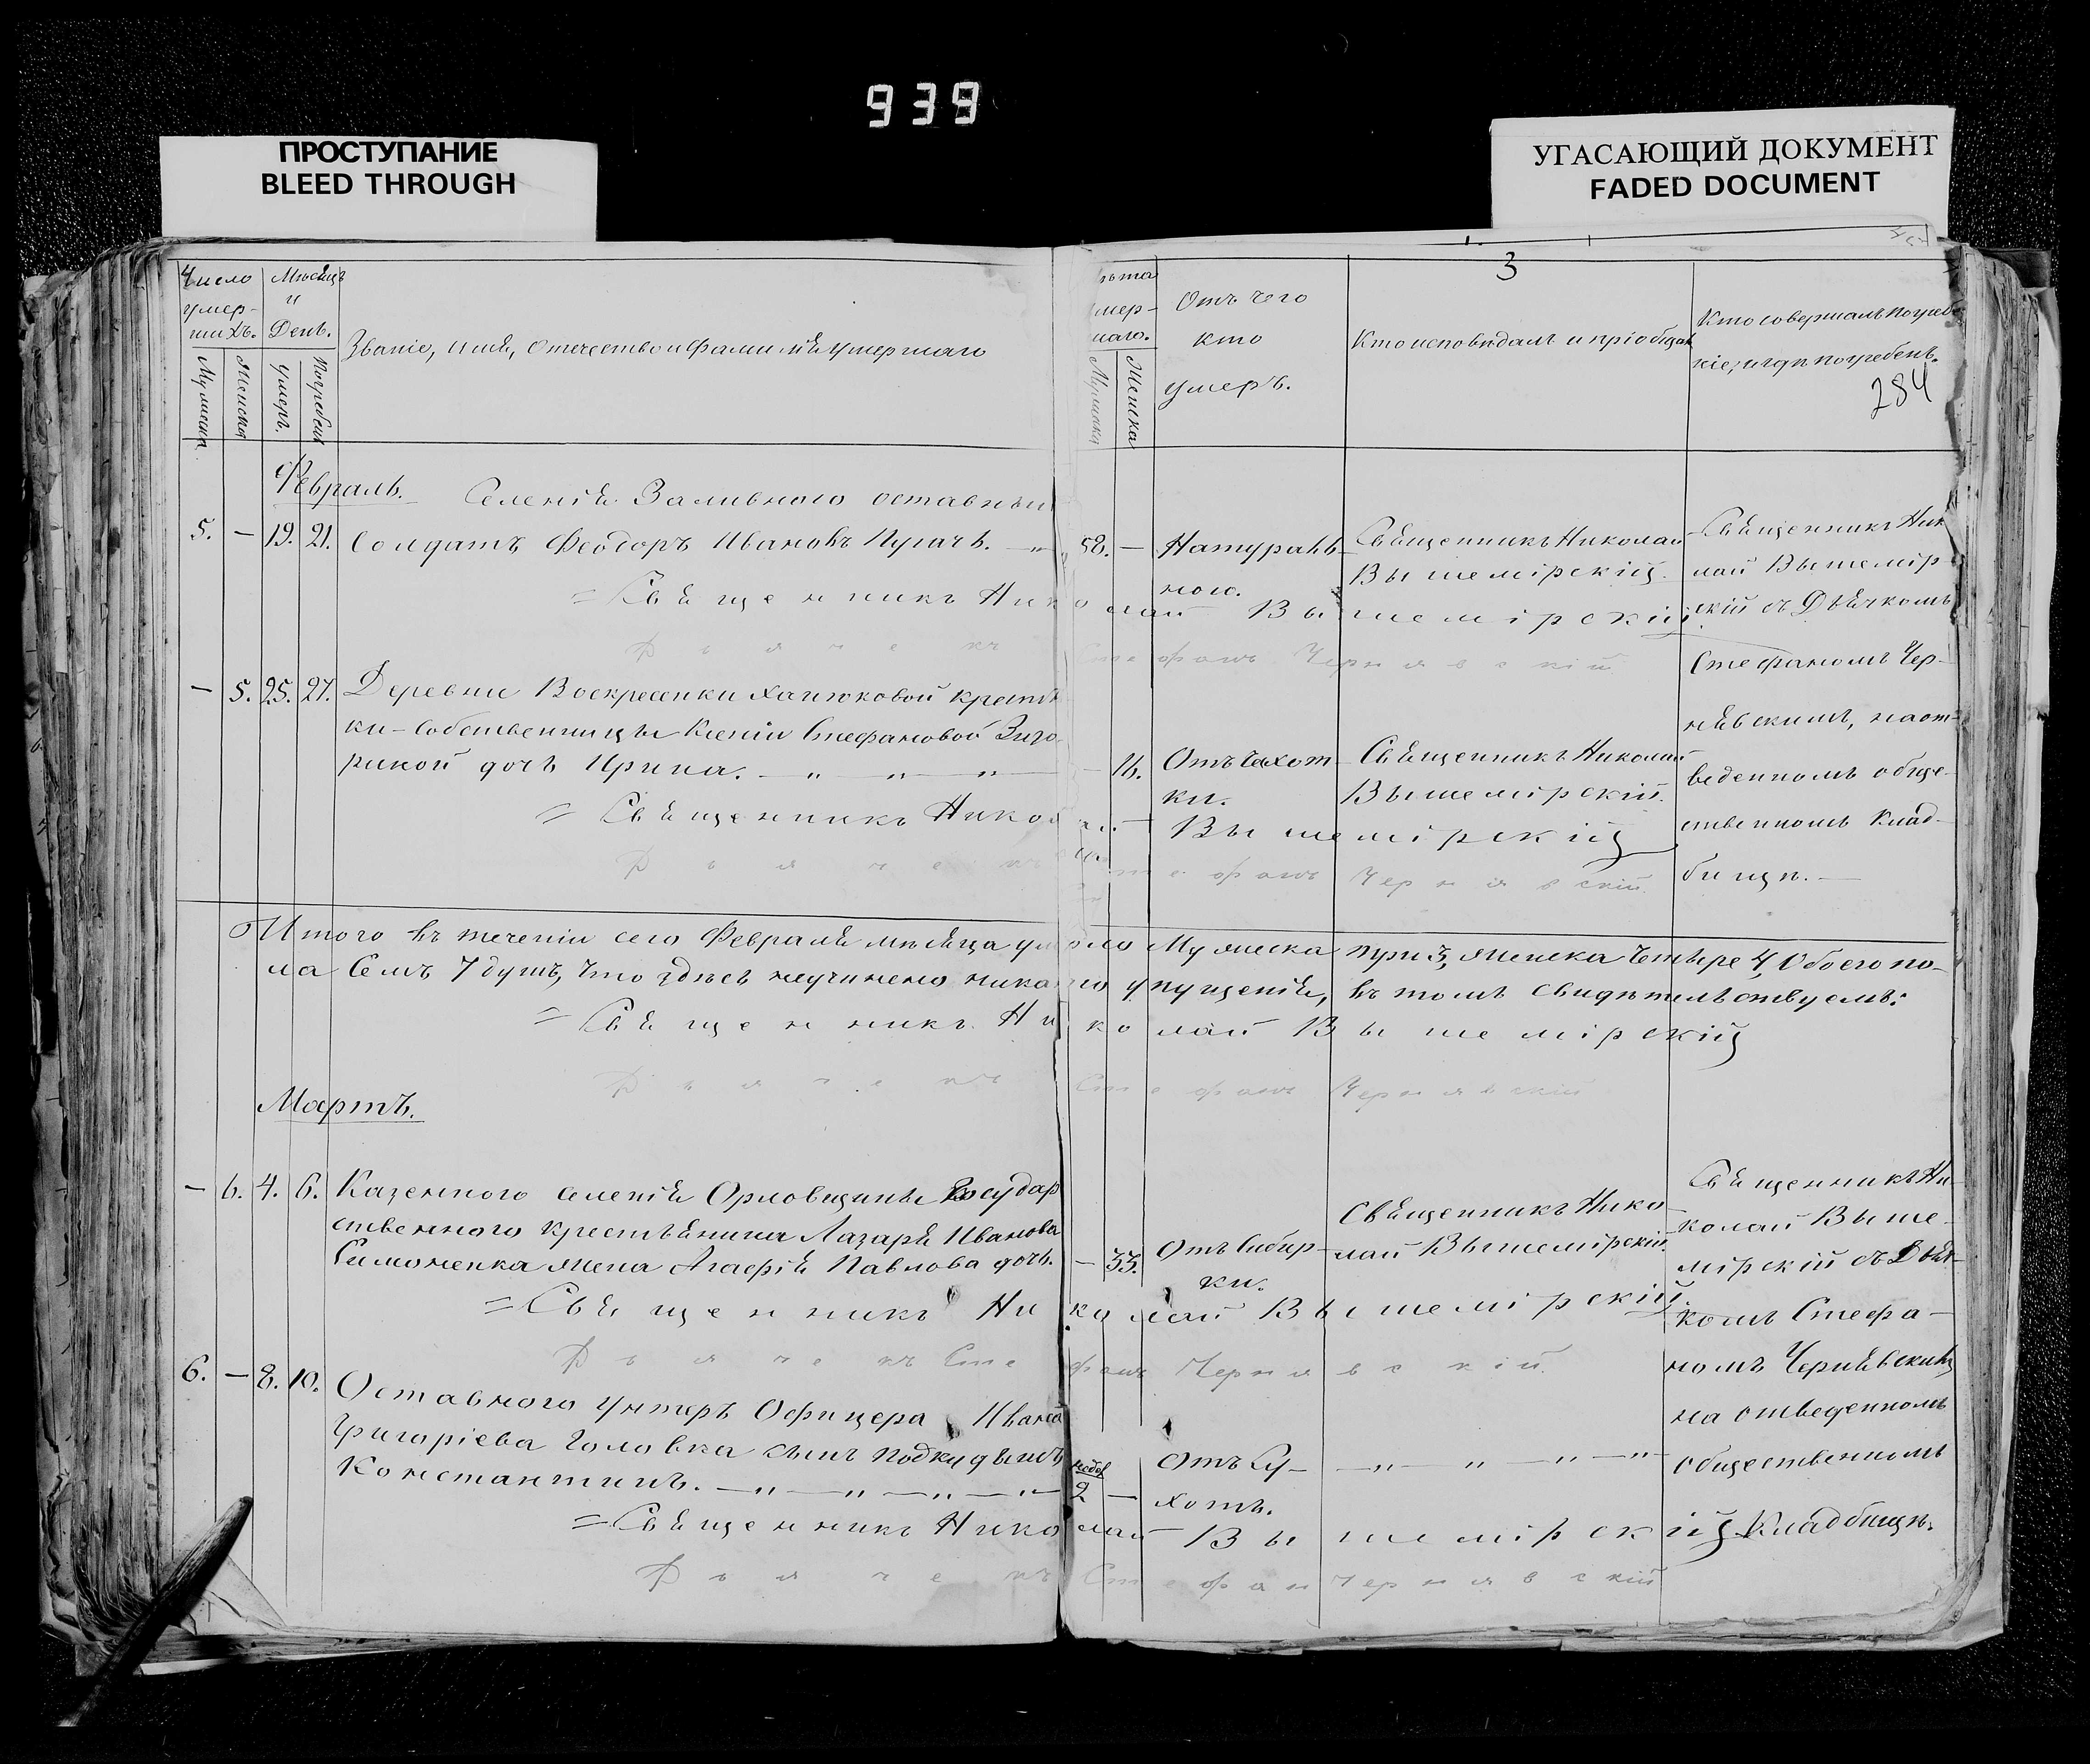 939
ПРОСТУПАНИЕ
BLEED THROUGH
УГАСАЮЩИЙ ДОКУМЕНТ
FADED DOCUMENT
Число
умер-
шихъ.
Мужеска
Женска
Мѣсяцъ
и
День.
умеръ.
Погребенъ
Званіе, имя, отечество и фамилія умершаго
лѣта
умер-
шаго.
Мужска
Женска
Отъ чего
кто
умеръ.
3
Кто исповѣдалъ и пріобщалъ
Кто совершалъ погребе-
ніе, и гдѣ погребенъ.
284
Февраль.
Селенія Заливного оставный
5. — 19. 21. Солдатъ Феодоръ Ивановъ Пугачъ. — „
58. — Натураль-
ною.
Священникъ Николай
Вышемірскій.
Священникъ Ник
лай Вышемір
скій съ Дьячкомъ
Стефаномъ Чер-
нявскимъ, на от-
веденномъ обще-
ственномъ клад-
бищѣ. —
= Священникъ Николай Вышемірскій.
Дьячекъ Стефанъ Чернявскій
— 5. 25. 27. Деревни Воскресенки Ханюковой крестьян
ки-собственницы Ксеніи Стефановой
дочь Ирина. — „ — „ — „ —
— 16. Отъ чахот
ки.
Священникъ Николай
Вышемірскій.
= Священникъ Николай Вышемірскій
Дьячекъ Стефанъ Чернявскій
Итого въ теченіи сего Февраля мѣсяца умерло Мужеска три 3, Женска четыре 4, Обоего по-
ла Семъ 7 душъ, Что здѣсь неучинено никакого упущенія, въ томъ свидѣтельствуемъ:
= Священникъ Николай Вышемірскій
Дьячекъ Стефанъ Чернявскій
Мартъ.
— 6. 4. 6. Казенного селенія Орловщины Государ
ственного крестьянина Лазаря Иванова
Симоненка жена Агафія Павлова дочь.
— 33. Отъ Сибир-
ки.
Священникъ Нико
лай Вышемірскій.
Священникъ Ни-
колай Выше-
мірскій съ Дьяч-
комъ Стефа-
номъ Чернявскимъ
на отведенномъ
общественномъ
Кладбищѣ.
= Священникъ Николай Вышемірскій.
Дьячекъ Стефанъ Чернявскій.
6. — 8. 10. Оставного унтеръ Офицера Ивана
Григоріева Головка сынъ подкидышъ
Константинъ. — „ — „ — „ — „ —
2 — Отъ Су-
хотъ.
— „ „ „ — „ —
= Священникъ Николай Вышемірскій
Дьячекъ Стефан Чернявскій